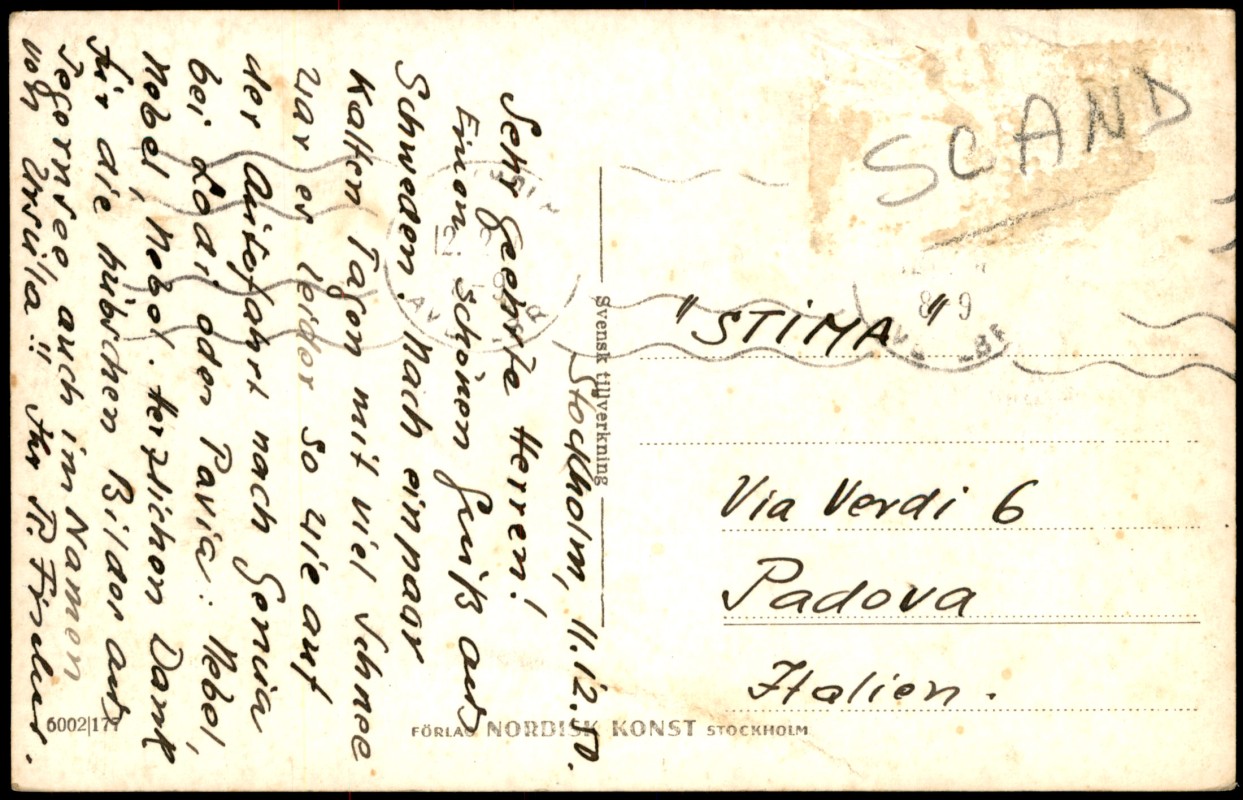 Stockholm, 11.12.50.
Sehr geehrte Herren!
Einen schönen Gruß aus
Schweden. Nach ein paar
kalten Tagen mit viel Schnee
war es leider so wie auf
der Autofahrt nach Genua
bei Lodi oder Pavia: Nebel,
Nebel, Nebel. Herzlichen Dank
für die hübschen Bilder aus
Tegernsee, auch im Namen
von Ursula!! Ihr
Svensk tillverkning
SCAND
"STIMA"
Via Verdi 6
Padova
Italien.
6002|177
FÖRLAG NORDISK KONST STOCKHOLM